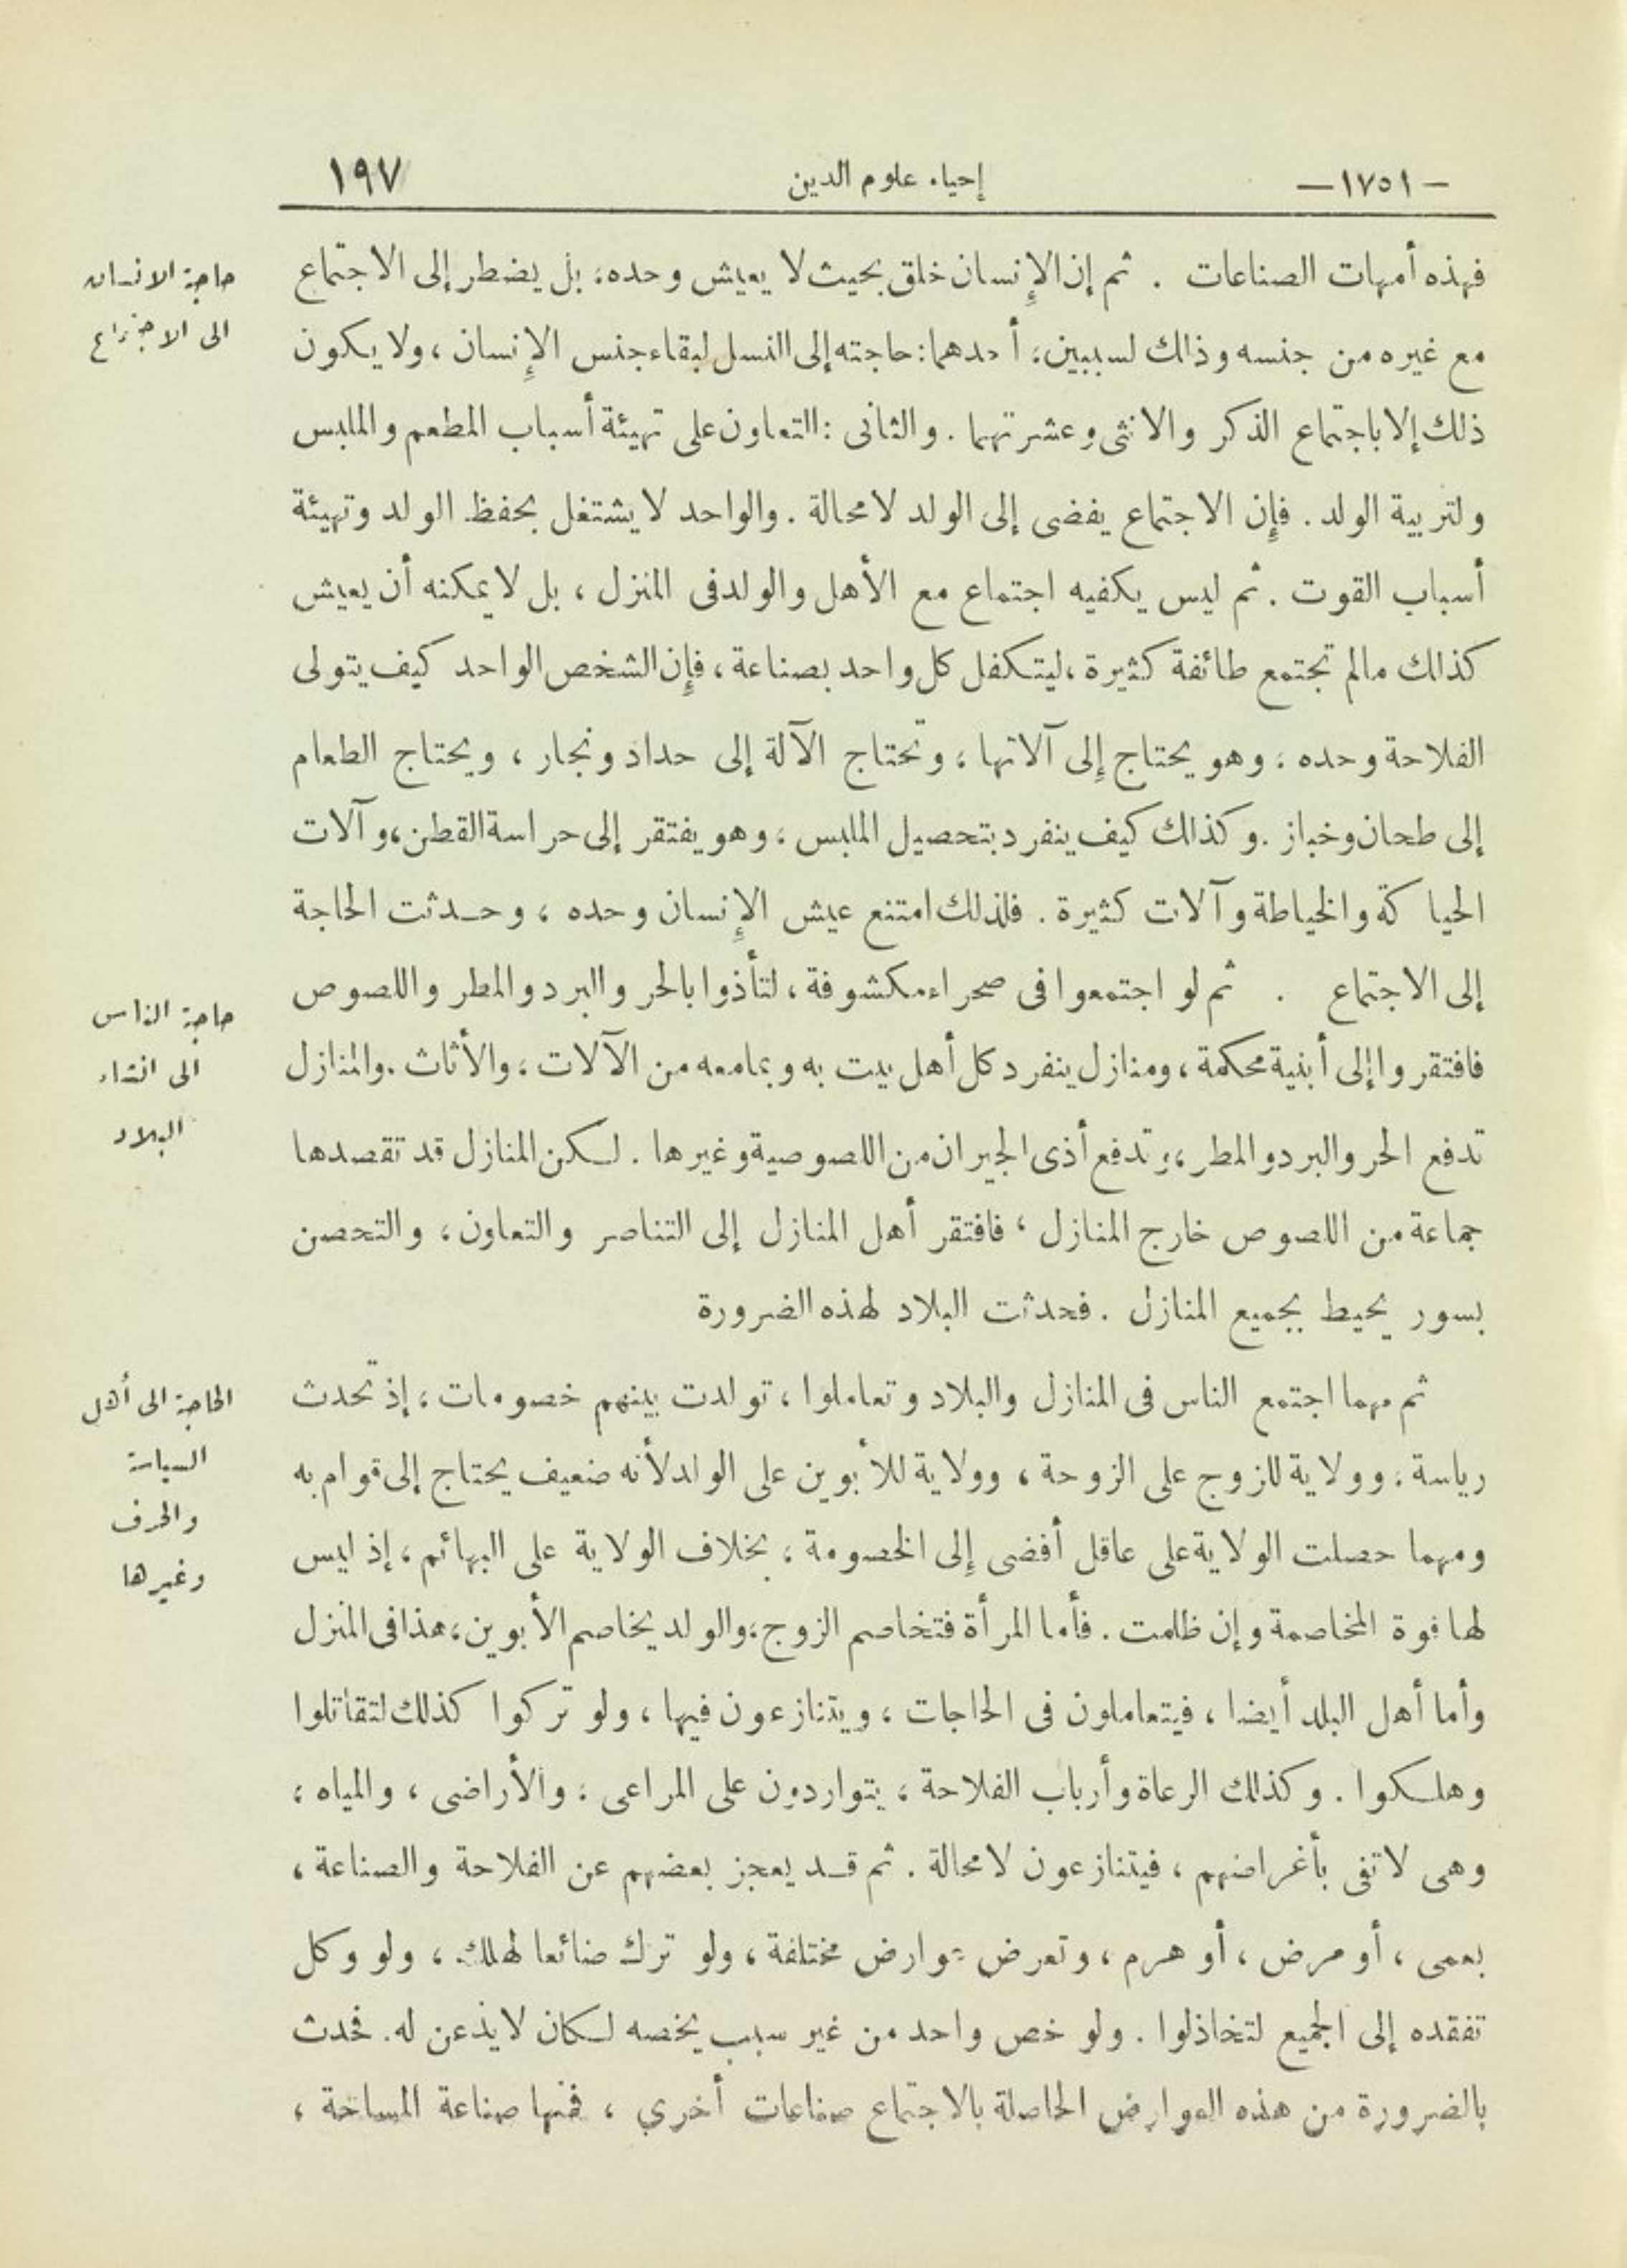 -١٧٥١-
إحياء علوم الدين
١٩٧
فهذه أمهات الصناعات . ثم إن الإنسان خلق بحيث لا يعيش وحده، بل يضطر إلى الاجتماع
مع غيره من جنسه وذلك لسببين، أحدهما: حاجته إلى النسل لبقاء جنس الإنسان ، ولا يكون
ذلك إلا باجتماع الذكر والانثى وعشرتهما . والثانى : التعاون على تهيئة أسباب المطعم والملبس
ولتربية الولد . فإن الاجتماع يفضى إلى الولد لا محالة . والواحد لا يشتغل بحفظ الولد وتهيئة
أسباب القوت . ثم ليس يكفيه اجتماع مع الأهل والولد فى المنزل ، بل لا يمكنه أن يعيش
كذلك مالم تجتمع طائفة كثيرة ، ليتكفل كل واحد بصناعة ، فإن الشخص الواحد كيف يتولى
الفلاحة وحده ، وهو يحتاج إلى آلاتها ، وتحتاج الآلة إلى حداد ونجار ، ويحتاج الطعام
إلى طحان وخباز . وكذلك كيف ينفرد بتحصيل الملبس ، وهو يفتقر إلى حراسة القطن ، وآلات
الحياكة والخياطة وآلات كثيرة . فلذلك امتنع عيش الإنسان وحده ، وحدثت الحاجة
إلى الاجتماع . ثم لو اجتمعوا فى صحراء مكشوفة ، لتأذوا بالحر والبرد والمطر واللصوص
فافتقروا إلى أبنية محكمة ، ومنازل ينفرد كل أهل بيت به وبما معه من الآلات ، والأثاث . والمنازل
تدفع الحر والبرد والمطر ، وتدفع أذى الجيران من اللصوصية وغيرها . لكن المنازل قد تقصدها
جماعة من اللصوص خارج المنازل ، فافتقر أهل المنازل إلى التناصر والتعاون ، والتحصن
بسور يحيط بجميع المنازل . فحدثت البلاد لهذه الضرورة
ثم مهما اجتمع الناس فى المنازل والبلاد وتعاملوا ، تولدت بينهم خصومات ، إذ تحدث
رياسة ، وولاية للزوج على الزوجة ، وولاية للأبوين على الولد لأنه ضعيف يحتاج إلى قوام به
ومهما حصلت الولاية على عاقل أفضى إلى الخصومة ، بخلاف الولاية على البهائم ، إذ ليس
لها قوة المخاصمة وإن ظلمت . فأما المرأة فتخاصم الزوج ، والولد يخاصم الأبوين ، هذا فى المنزل
وأما أهل البلد أيضا ، فيتعاملون فى الحاجات ، ويتنازعون فيها ، ولو تركوا كذلك لتقاتلوا
وهلكوا . وكذلك الرعاة وأرباب الفلاحة ، يتواردون على المراعى ، والأراضى ، والمياه ،
وهى لا تفى بأغراضهم ، فيتنازعون لا محالة . ثم قد يعجز بعضهم عن الفلاحة والصناعة ،
بعمى ، أو مرض ، أو هرم ، وتعرض عوارض مختلفة ، ولو ترك ضائعا لهلك ، ولو وكل
تفقده إلى الجميع لتخاذلوا . ولو خص واحد من غير سبب يخصه لكان لا يذعن له . فحدث
بالضرورة من هذه العوارض الحاصلة بالاجتماع صناعات أخرى ، فمنها صناعة المساحة ،
حاجة الانسان
الى الاجتماع
حاجة الناس
الى انشاء
البلاد
الحاجة الى أهل
السياسة
والحرف
وغيرها